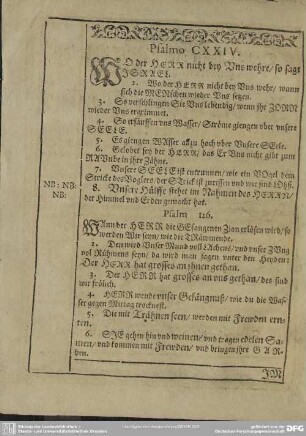 Psalmo CXXIV.
WO der HERR nicht bey Uns wehre/ so sagt
ISRAEL.
2. Wo der HERR nicht bey Uns wehr/ wann
sich die MENschen wieder Uns setzen.
3. So verschlingen Sie Uns lebendig/ wenn ihr ZORN
wieder Uns ergrimmet.
4. So ersäufften uns Wasser/ Ströme giengen über unsere
SEELE.
5. Es giengen WAsser allzu hoch über Unsere SEele.
6. Gelobet sey der HERR/ das Er Uns nicht gibt zum
RAUube in ihre Zähne.
7. Unsere SEELE ist entrunnen/ wie ein VOgel dem
Stricke des Voglers der Strick ist zurissen und wir sind LOhß.
NB: NB:
NB:
8. Unsere Hülffe stehet im Nahmen des HERRN/
der Himmel und Erden gemacht hat.
Psalm 126.
WAnn der HERR die GEfangenen Zion erlösen wird/ so
werden Wir seyn/ wie die TRäumende.
2. Denn wird Unser Mund voll LAchens/ und unser ZUng
vol Rühmens seyn/ da wird man sagen unter den Heyden:
Der HERR hat grosses an ihnen gethan.
3. Der HERR hat grosses an uns gethan/ des sind
wir frölich.
4. HERR wende unser Gefängnuß/ wie du die Was-
ser gegen Mittag trocknest.
5. Die mit Trähnen seen/ werden mit Frewden ern-
ten.
6. SIE gehen hin und weinen/ und tragen edelen Sa-
men/ und kommen mit Frewden/ und bringen ihre GAR-
ben.
JM